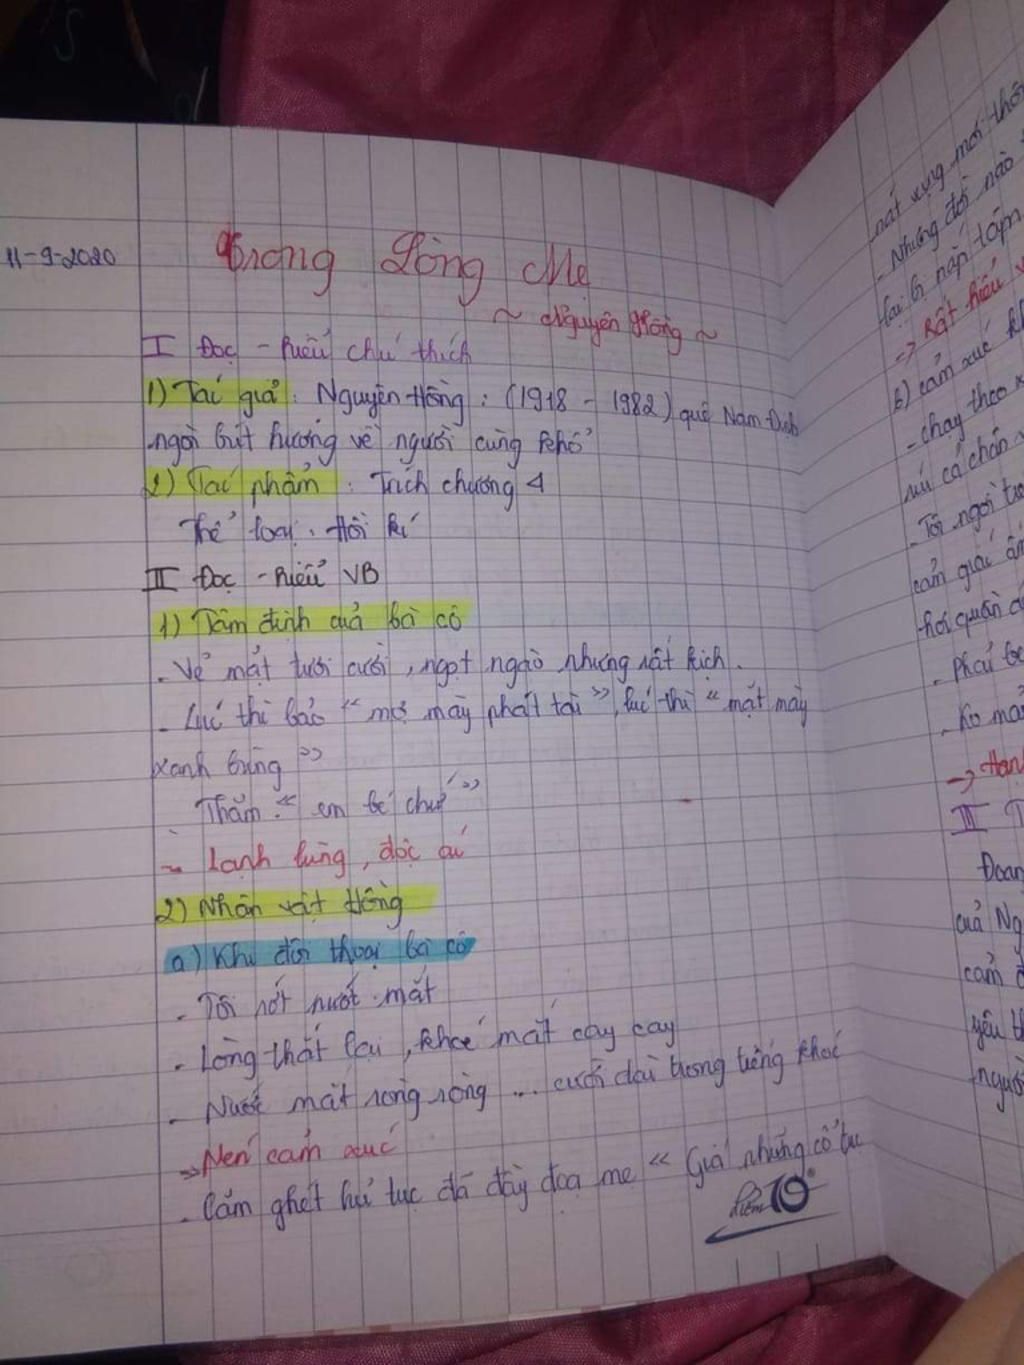 11-9-2020
Trong Lòng Mẹ
~ Nguyên Hồng ~
I Đọc - hiểu chú thích
1) Tác giả: Nguyên Hồng: (1918 - 1982) quê Nam Định
ngòi bút hướng về người cùng khổ
2) Tác phẩm: Trích chương 4
Thể loại: Hồi kí
II Đọc - hiểu VB
1) Tâm định của bà cô
- Vẻ mặt tươi cười, ngọt ngào nhưng rất kịch.
- Lúc thì bảo "mợ mày phát tài", lúc thì "mặt mày
xanh bủng"
Thăm "em bé chứ"
~ Lạnh lùng, độc ác
2) Nhân vật Hồng
a) Khi đối thoại bà cô
- Tôi rớt nước mắt
- Lòng thắt lại, khoé mắt cay cay
- Nước mắt ròng ròng ... cười dài trong tiếng khóc
=> Nén cảm xúc
- Căm ghét hủ tục đã đày đọa mẹ "Giá những cổ tục
điểm 10
nát vụng mới thôi
- Những đời nào
lại bị
-> Rất hiểu
b) cảm xúc kh
- chạy theo x
ríu cả chân
- Tôi ngồi tr
cảm giác ấm
hơi quần á
- phải bé
- ko mả
-> Hạn
III T
Đoạn
của Ng
cảm đ
yêu th
người